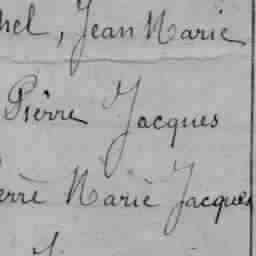 hel, Jean Marie
Pièrre Jacques
erre Marie Jacques